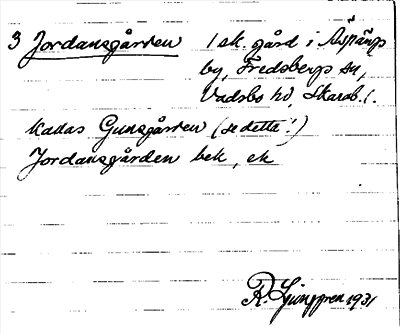 3 Jordansgården 1 sk. gård i Äspänp
by, Fredsbergs sn,
Vadsbo hd, Skarab. l.
Kallas Gunsgården (se detta!)
Jordansgården bek, ek
R. Ljunggren 1931